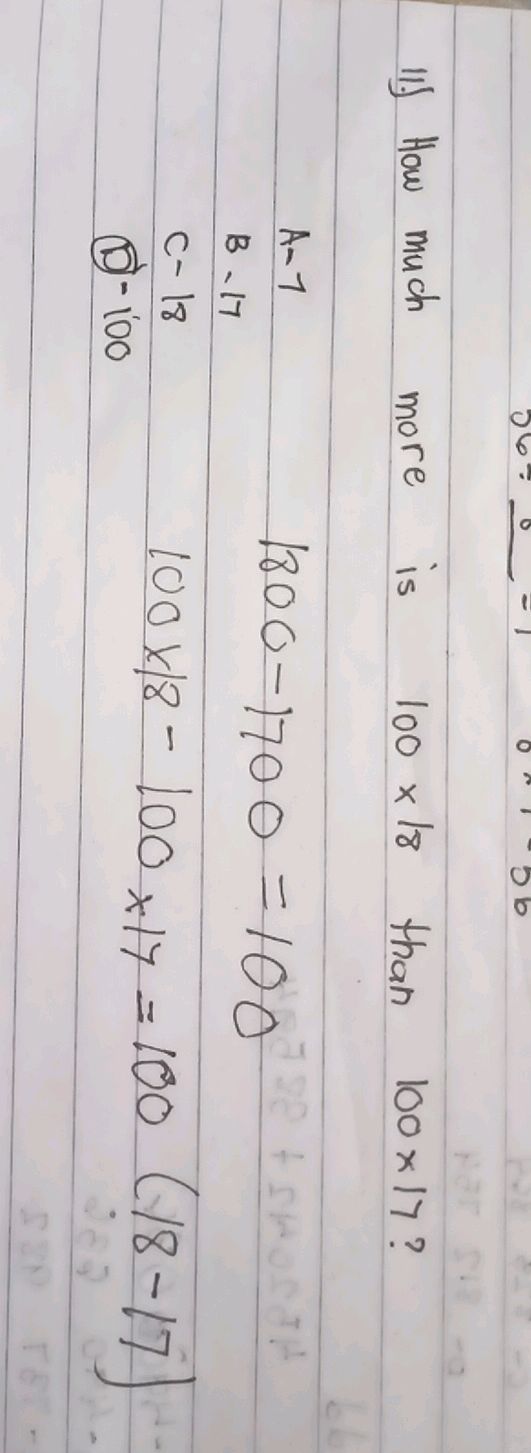 56 ÷ 8 = 7 8 × 7 = 56
11.) How much more is 100 × 18 than 100 × 17?
A - 7
B - 17
C - 18
D - 100
1800 - 1700 = 100
100 × 18 - 100 × 17 = 100 (18 - 17)